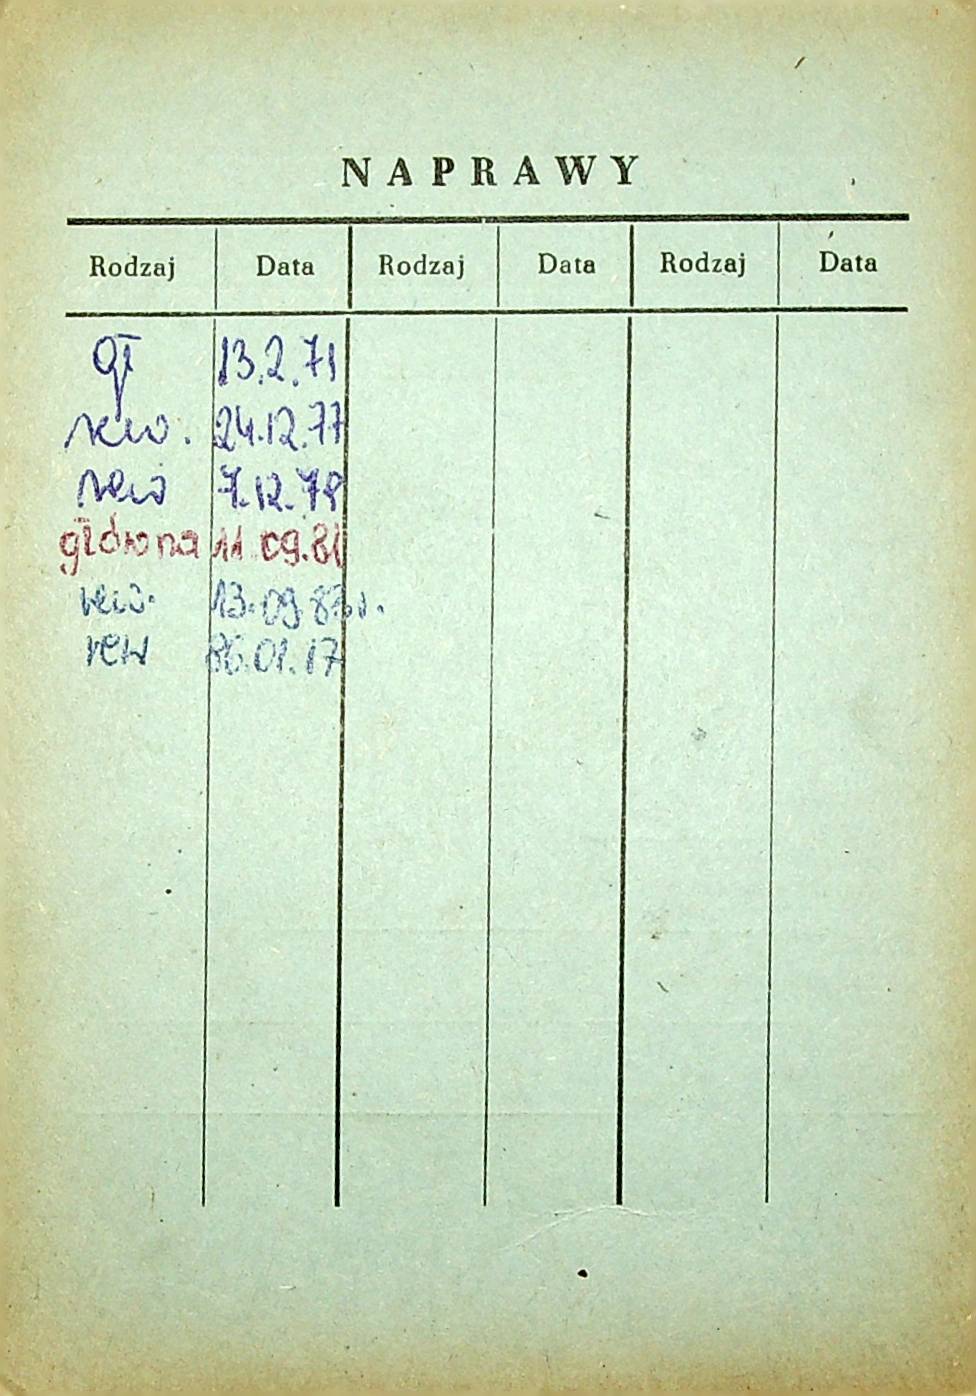 NAPRAWY
Rodzaj Data Rodzaj Data Rodzaj Data
gł 13.2.71
rew. 24.12.77
rew 7.12.78
główna 11.09.81
rew. 13.09.83r.
rew 86.01.17